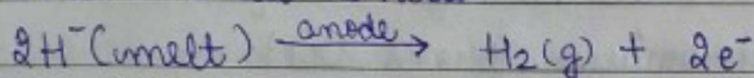 2H⁻(melt) anode→ H₂(g) + 2e⁻